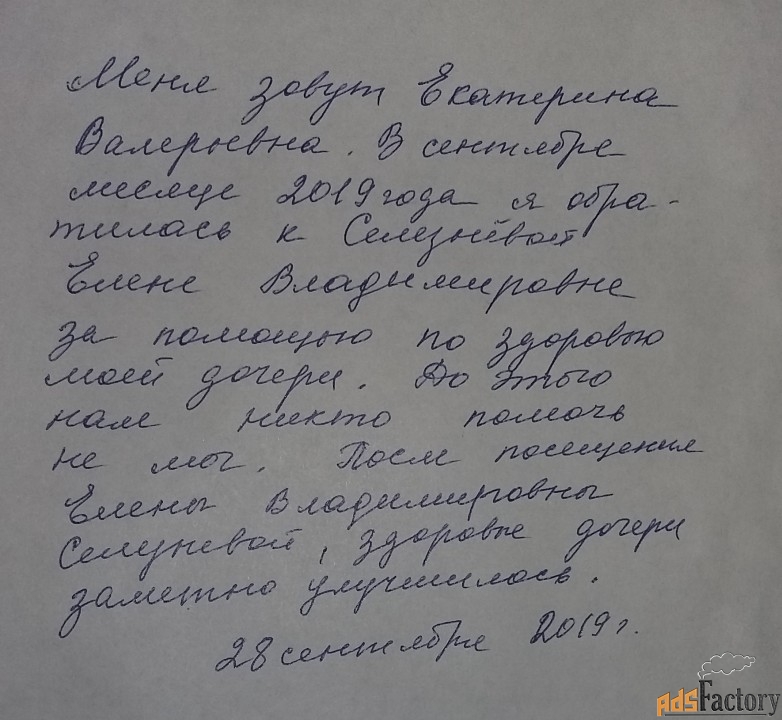 Меня зовут Екатерина
Валерьевна. В сентябре
месяце 2019 года я обра-
тилась к Селезнёвой
Елене Владимировне
за помощью по здоровью
моей дочери. До этого
нам никто помочь
не мог. После посещения
Елены Владимировны
Селезневой, здоровье дочери
заметно улучшилось.
28 сентября 2019 г.
AdsFactory